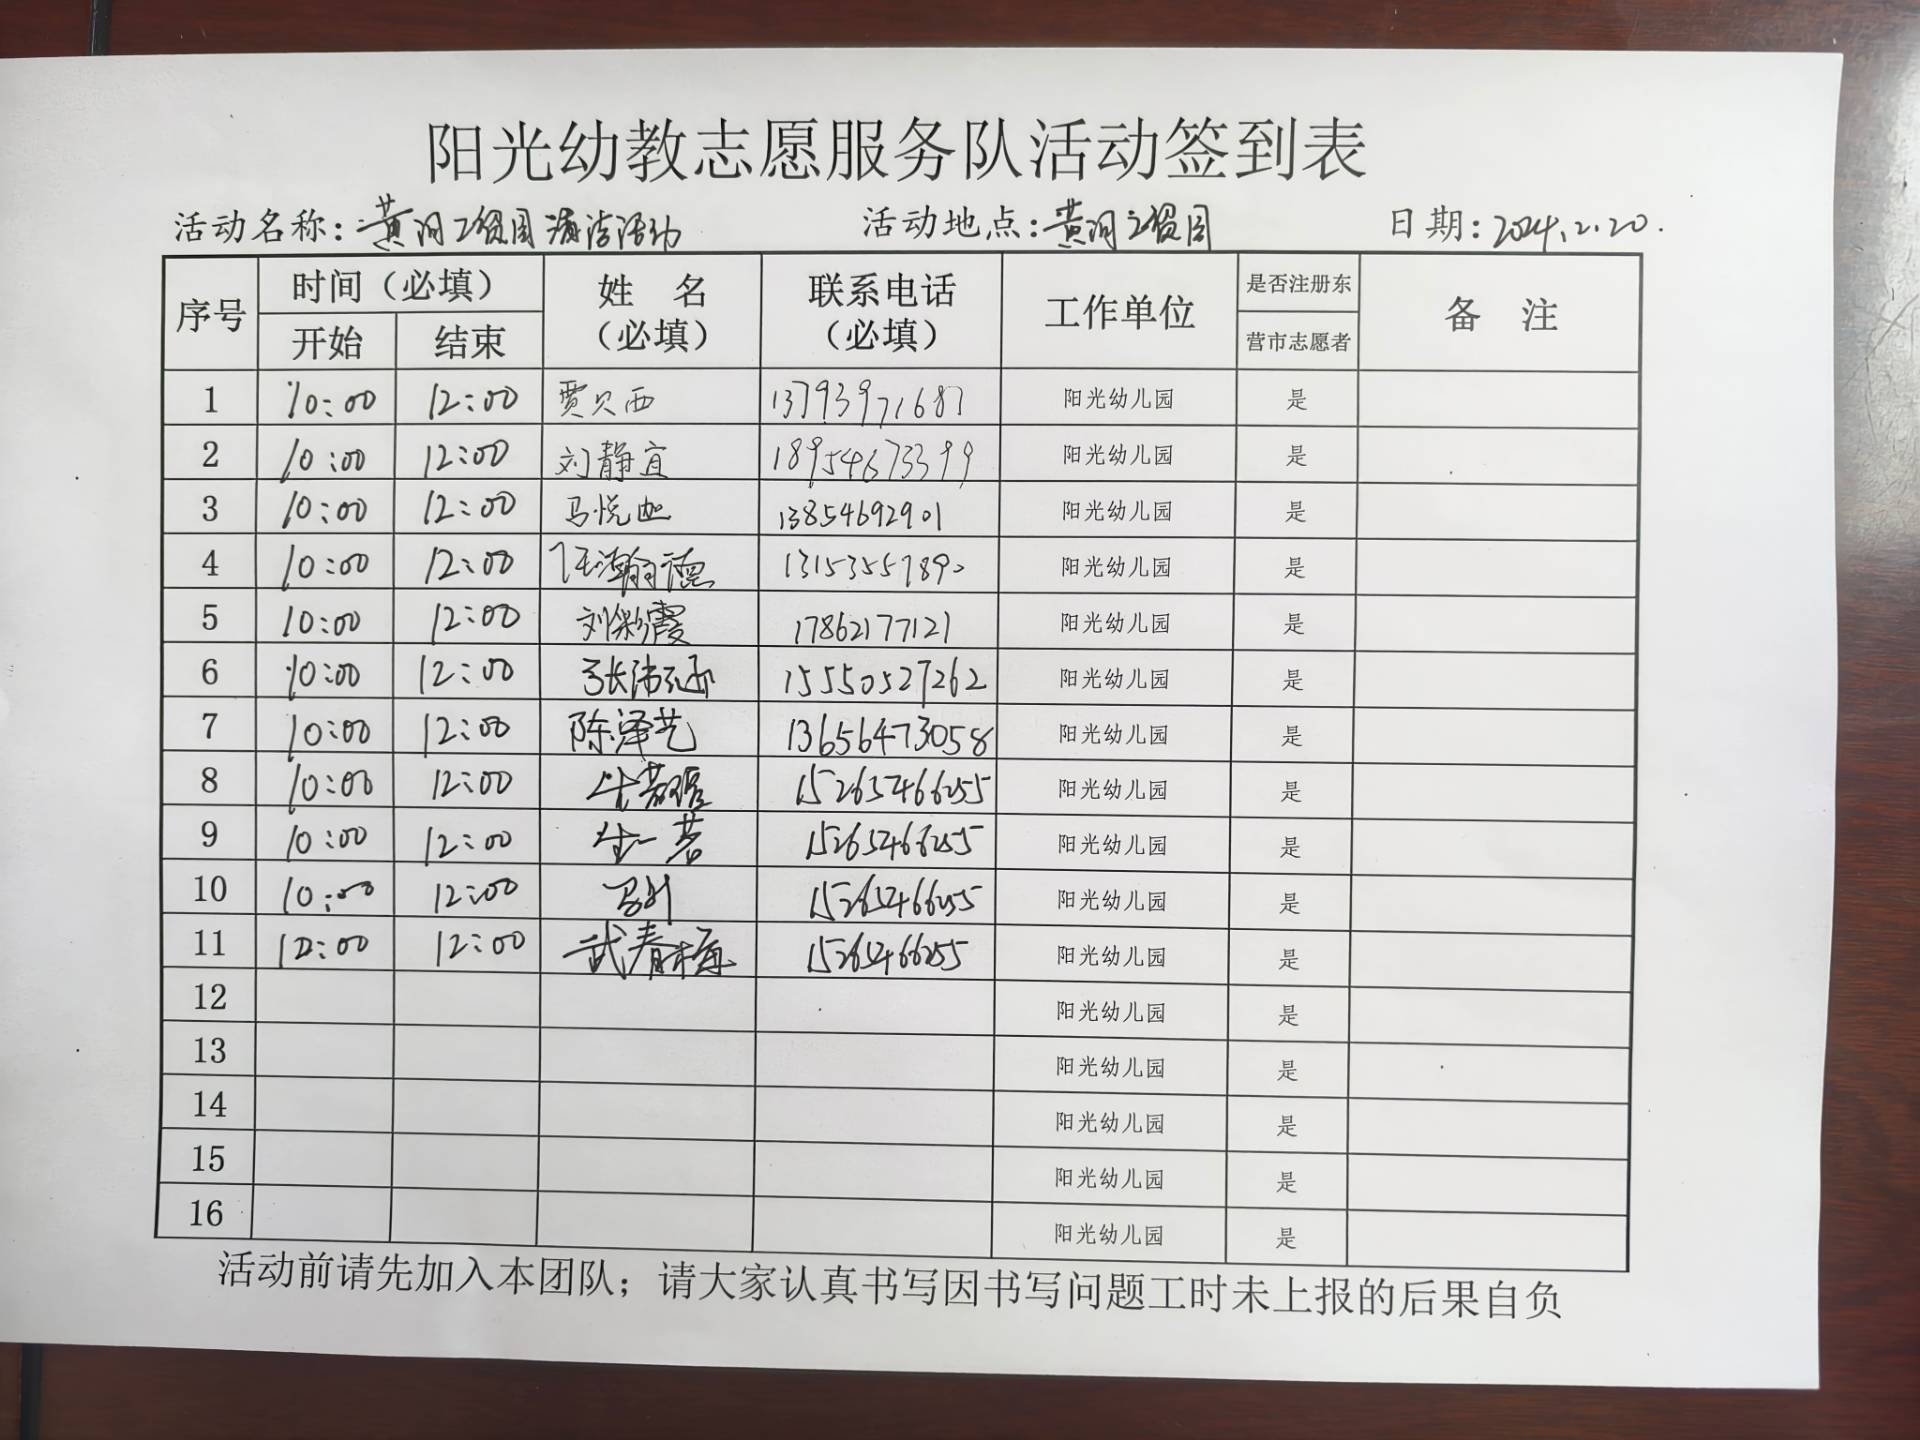 阳光幼教志愿服务队活动签到表
活动名称：黄河 清洁活动 活动地点：黄河 日期：2024.2.20.
序号 时间（必填） 开始 结束 姓 名（必填） 联系电话（必填） 工作单位 是否注册东营市志愿者 备 注
1 10:00 12:00 贾贝西 13793971687 阳光幼儿园 是
2 10:00 12:00 刘静宜 18954673399 阳光幼儿园 是
3 10:00 12:00 马悦 13854692901 阳光幼儿园 是
4 10:00 12:00 汪瀚德 阳光幼儿园 是
5 10:00 12:00 刘彩霞 17862177121 阳光幼儿园 是
6 10:00 12:00 张 15550527262 阳光幼儿园 是
7 10:00 12:00 陈泽艺 13656473058 阳光幼儿园 是
8 10:00 12:00 15265466255 阳光幼儿园 是
9 10:00 12:00 生一茗 15265466255 阳光幼儿园 是
10 10:00 12:00 15265466255 阳光幼儿园 是
11 12:00 12:00 武春梅 15265466255 阳光幼儿园 是
12 阳光幼儿园 是
13 阳光幼儿园 是
14 阳光幼儿园 是
15 阳光幼儿园 是
16 阳光幼儿园 是
活动前请先加入本团队；请大家认真书写因书写问题工时未上报的后果自负